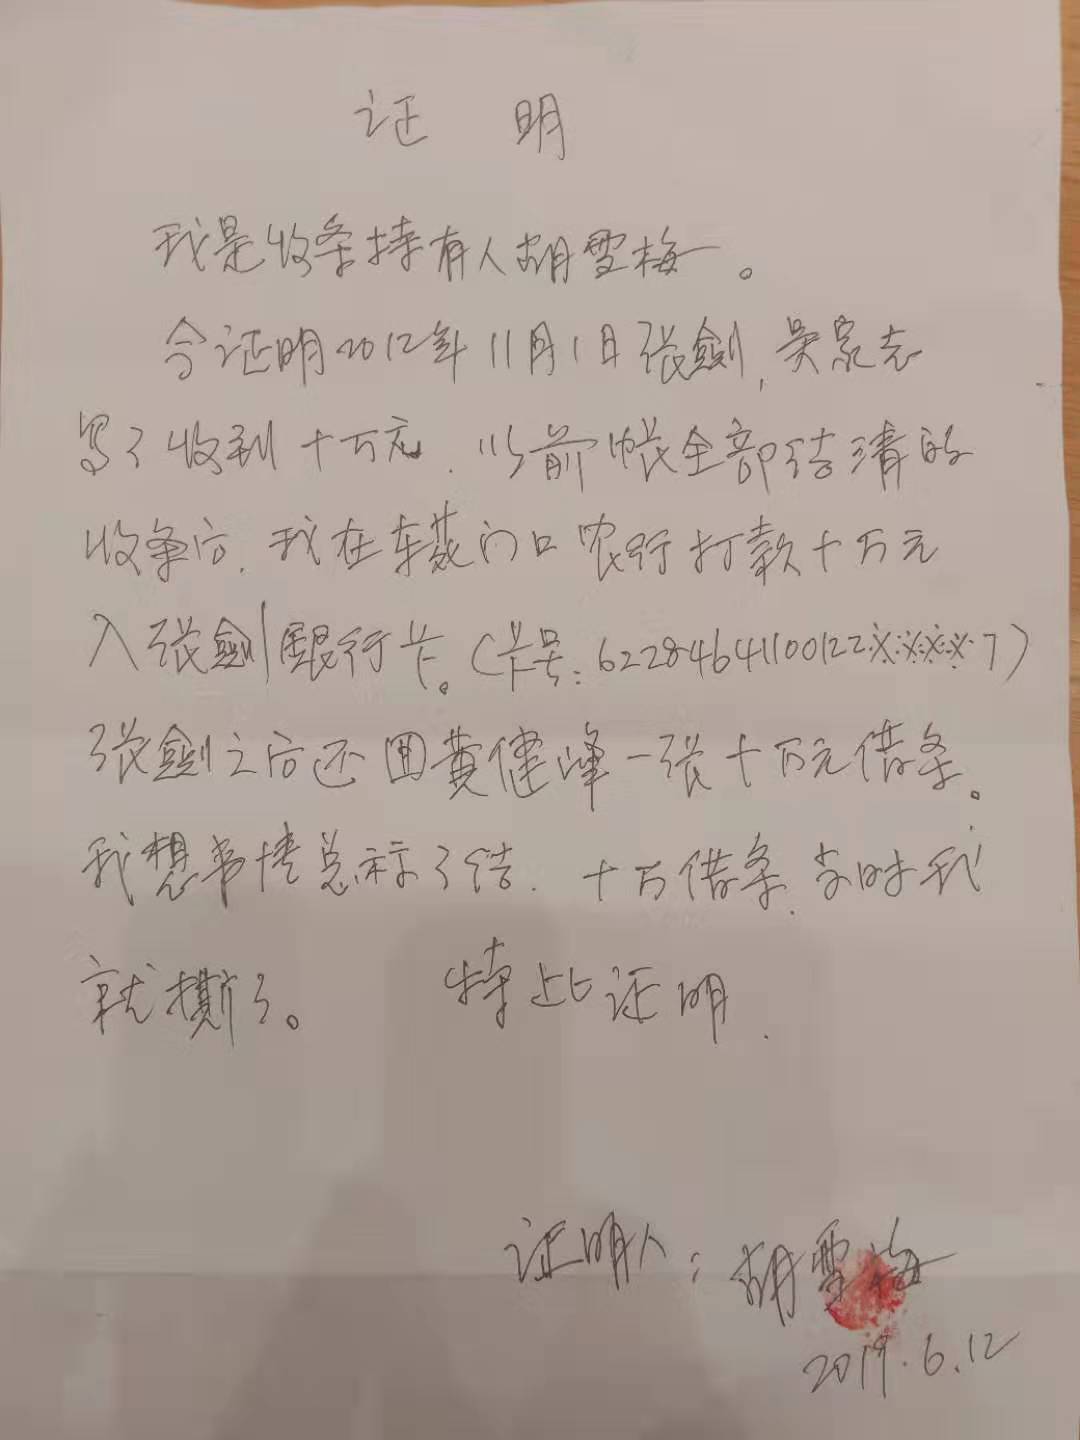 证 明
我是收条持有人胡雪梅。
今证明2012年11月1日张剑,吴家志
写了收到十万元.以前帐全部结清的
收条后.我在车菱门口农行打款十万元
入张剑银行卡。(卡号:62284641100122※※※※7)
张剑之后还回黄健峰一张十万元借条。
我想事情总算了结.十万借条.当时我
就撕了。 特此证明.
证明人:胡雪梅
2019.6.12